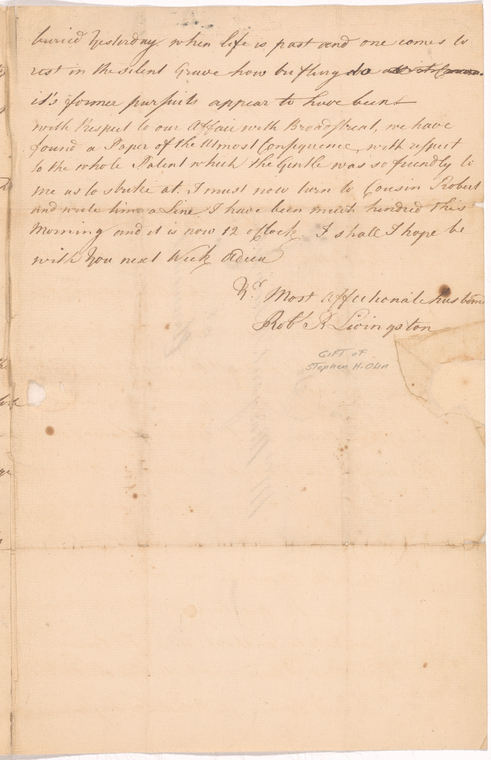 buried Yesterday, when life is past and one comes to
rest in the silent Grave how trifling do
it's former pursuits appear to have been
with Respect to our Affair with Broadstreat, we have
found a Paper of the Utmost Consequence, with respect
to the whole Patent which the Gentle was so friendly to
me as to strike at. I must now turn to Cousin Robert
and write him a Line I have been much hindred this
Morning and it is now 12 oClock I shall I hope be
with You next Week Adieu
Yr. Most Affectionate husband
Robt R Livingston
GIFT of
Stephen H. Olin